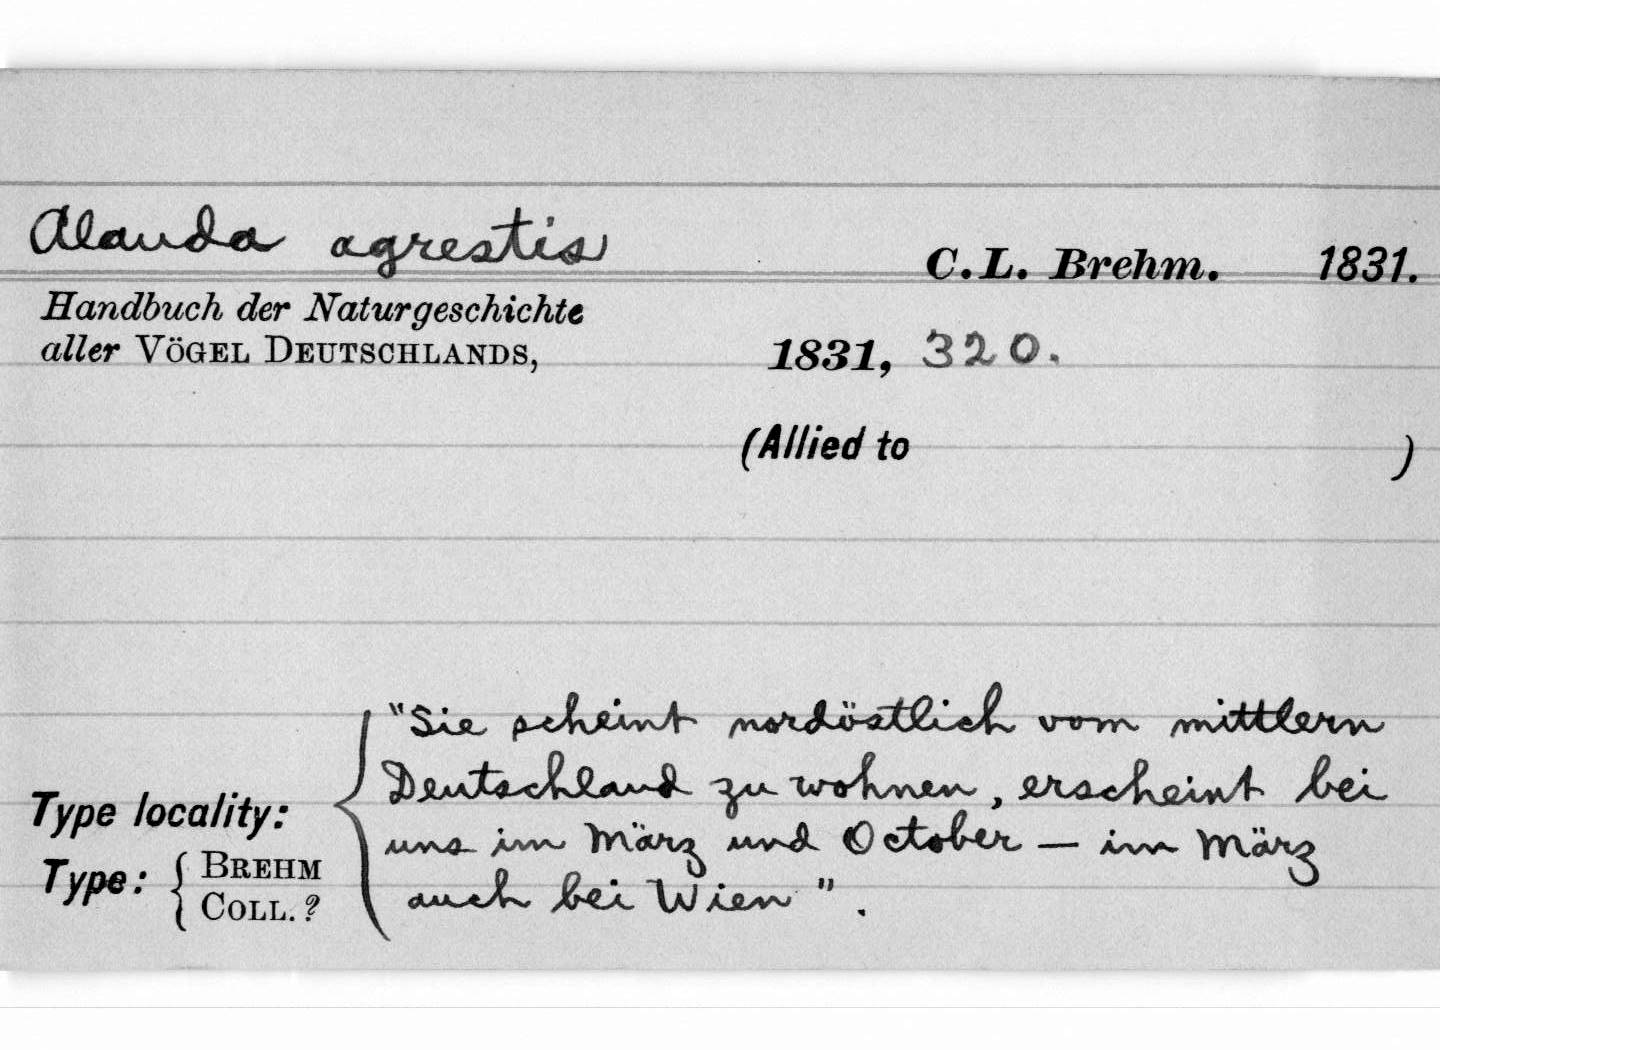 Alauda agrestis C.L. Brehm. 1831.
Handbuch der Naturgeschichte
aller VÖGEL DEUTSCHLANDS, 1831, 320.
(Allied to )
"Sie scheint nordöstlich vom mittlern
Deutschland zu wohnen, erscheint bei
Type locality:
uns im März und October — im März
Type: { BREHM
COLL. ?
auch bei Wien".